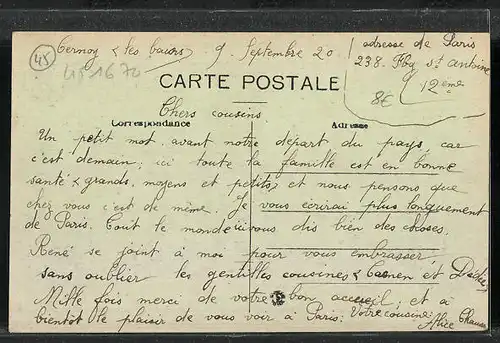 45
Cernoy (les bourgs) 9 Septembre 20
451670
adresse de Paris
238. Fbg St antoine
12ème
8€
CARTE POSTALE
Chers cousins
Correspondance
Adresse
Un petit mot avant notre départ du pays, car
c'est demain; ici toute la famille est en bonne
santé & grands, moyens et petits, et nous pensons que
chez vous c'est de même. Je vous écrirai plus longuement
de Paris. Tout le monde vous dis bien des choses.
René se joint à moi pour vous embrasser,
sans oublier les gentilles cousines & et Dédée,
Mille fois merci de votre bon accueil; et à
bientôt le plaisir de vous voir à Paris: Votre cousine
Alice